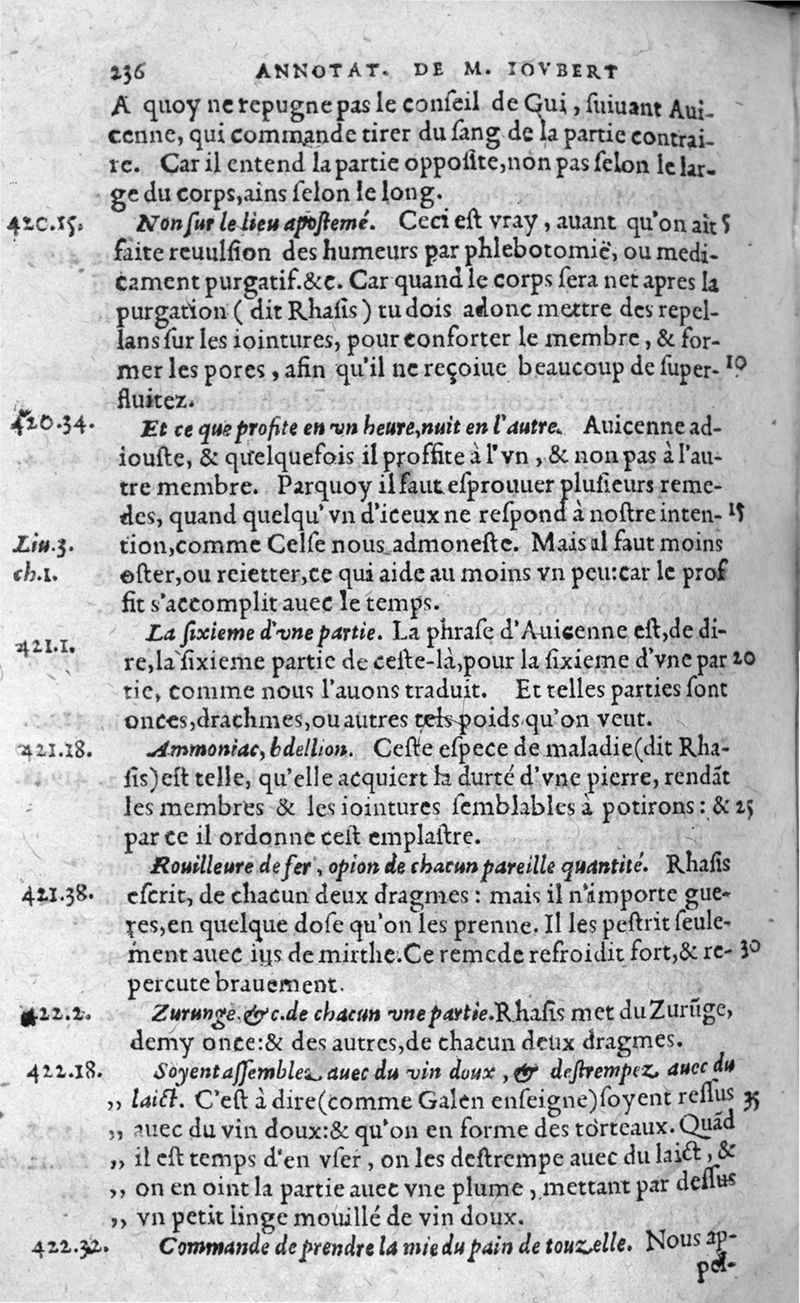 236 ANNOTAT. DE M. IOVBERT
A quoy ne repugne pas le conſeil de Gui, ſuiuant Aui-
cenne, qui commande tirer du ſang de la partie contrai-
re. Car il entend la partie oppoſite, non pas ſelon le lar-
ge du corps, ains ſelon le long.
420.15. Non ſur le lieu apoſtemé. Ceci eſt vray, auant qu'on ait 5
faite reuulſion des humeurs par phlebotomië, ou medi-
cament purgatif. &c. Car quand le corps ſera net apres la
purgation ( dit Rhaſis ) tu dois adonc mettre des repel-
lans ſur les iointures, pour conforter le membre, & for-
mer les pores, afin qu'il ne reçoiue beaucoup de ſuper- 10
fluitez.
420.34. Et ce que profite en vn heure, nuit en l'autre. Auicenne ad-
iouſte, & quelquefois il proffite à l'vn, & non pas à l'au-
tre membre. Parquoy il faut eſprouuer pluſieurs reme-
des, quand quelqu'vn d'iceux ne reſpond à noſtre inten- 15
Liu.3. tion, comme Celſe nous admoneſte. Mais il faut moins
ch.1. oſter, ou reietter, ce qui aide au moins vn peu: car le prof
fit s'accomplit auec le temps.
421.1. La ſixieme d'vne partie. La phraſe d'Auicenne eſt, de di-
re, la ſixieme partie de ceſte-là, pour la ſixieme d'vne par 20
tie, comme nous l'auons traduit. Et telles parties ſont
onces, drachmes, ou autres tels poids qu'on veut.
421.18. Ammoniac, bdellion. Ceſte eſpece de maladie (dit Rha-
ſis) eſt telle, qu'elle acquiert la durté d'vne pierre, rendãt
les membres & les iointures ſemblables à potirons: & 25
par ce il ordonne ceſt emplaſtre.
Rouilleure de fer, opion de chacun pareille quantité. Rhaſis
421.38. eſcrit, de chacun deux dragmes: mais il n'importe gue-
res, en quelque doſe qu'on les prenne. Il les peſtrit ſeule-
ment auec ius de mirthe. Ce remede refroidit fort, & re- 30
percute brauement.
422.2. Zurunge, &c. de chacun vne partie. Rhaſis met du Zurũge,
demy once: & des autres, de chacun deux dragmes.
422.18. Soyent aſſemblez auec du vin doux, & deſtrempez auec du
,, laict. C'eſt à dire (comme Galen enſeigne) ſoyent reſſus 35
,, auec du vin doux: & qu'on en forme des torteaux. Quãd
,, il eſt temps d'en vſer, on les deſtrempe auec du laict, &
,, on en oint la partie auec vne plume, mettant par deſſus
,, vn petit linge mouillé de vin doux.
422.32. Commande de prendre la mie du pain de touzelle. Nous ap-
pel-